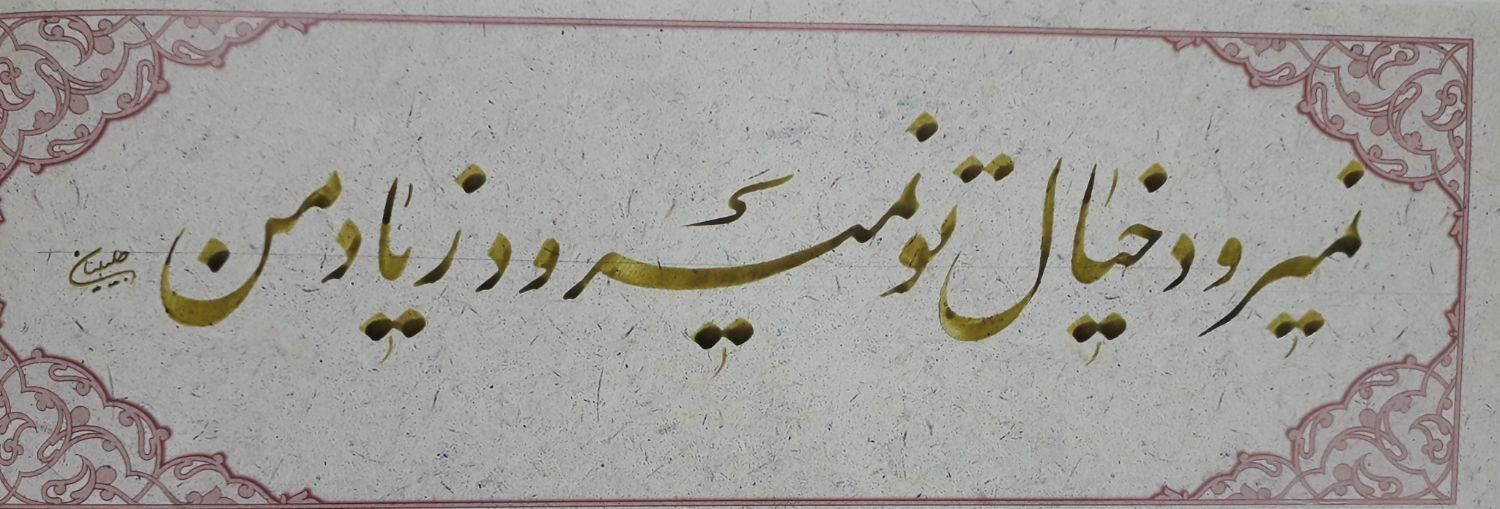 نمیرود خیال تو نمیرود ز یاد من